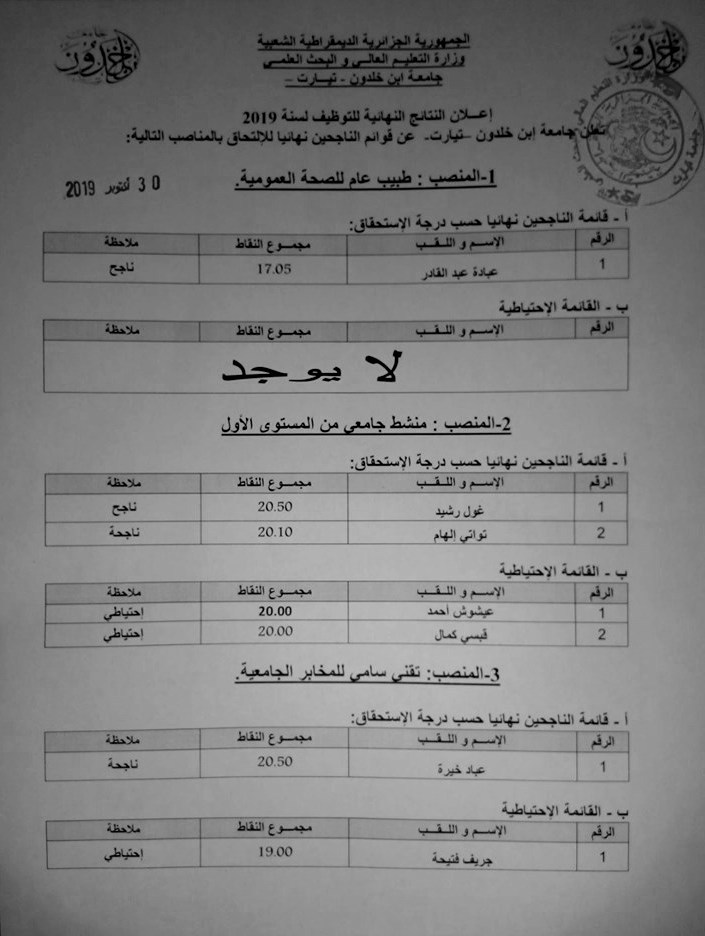 الجمهورية الجزائرية الديمقراطية الشعبية
وزارة التعليم العالي و البحث العلمي
جامعة ابن خلدون - تيارت –
إعلان النتائج النهائية للتوظيف لسنة 2019
تعلن جامعة إبن خلدون –تيارت- عن قوائم الناجحين نهائيا للإلتحاق بالمناصب التالية:
1-المنصب : طبيب عام للصحة العمومية.
30 أكتوبر 2019
أ - قائمة الناجحين نهائيا حسب درجة الإستحقاق:
الرقم الإسم و اللقب مجموع النقاط ملاحظة
1 عبادة عبد القادر 17.05 ناجح
ب - القائمة الإحتياطية
الرقم الإسم و اللقب مجموع النقاط ملاحظة
لا يوجد
2-المنصب : منشط جامعي من المستوى الأول
أ - قائمة الناجحين نهائيا حسب درجة الإستحقاق:
الرقم الإسم و اللقب مجموع النقاط ملاحظة
1 غول رشيد 20.50 ناجح
2 تواتي إلهام 20.10 ناجحة
ب - القائمة الإحتياطية
الرقم الإسم و اللقب مجموع النقاط ملاحظة
1 عيشوش أحمد 20.00 إحتياطي
2 قبسي كمال 20.00 إحتياطي
3-المنصب: تقني سامي للمخابر الجامعية.
أ - قائمة الناجحين نهائيا حسب درجة الإستحقاق:
الرقم الإسم و اللقب مجموع النقاط ملاحظة
1 عباد خيرة 20.50 ناجحة
ب - القائمة الإحتياطية
الرقم الإسم و اللقب مجموع النقاط ملاحظة
1 جريف فتيحة 19.00 إحتياطي